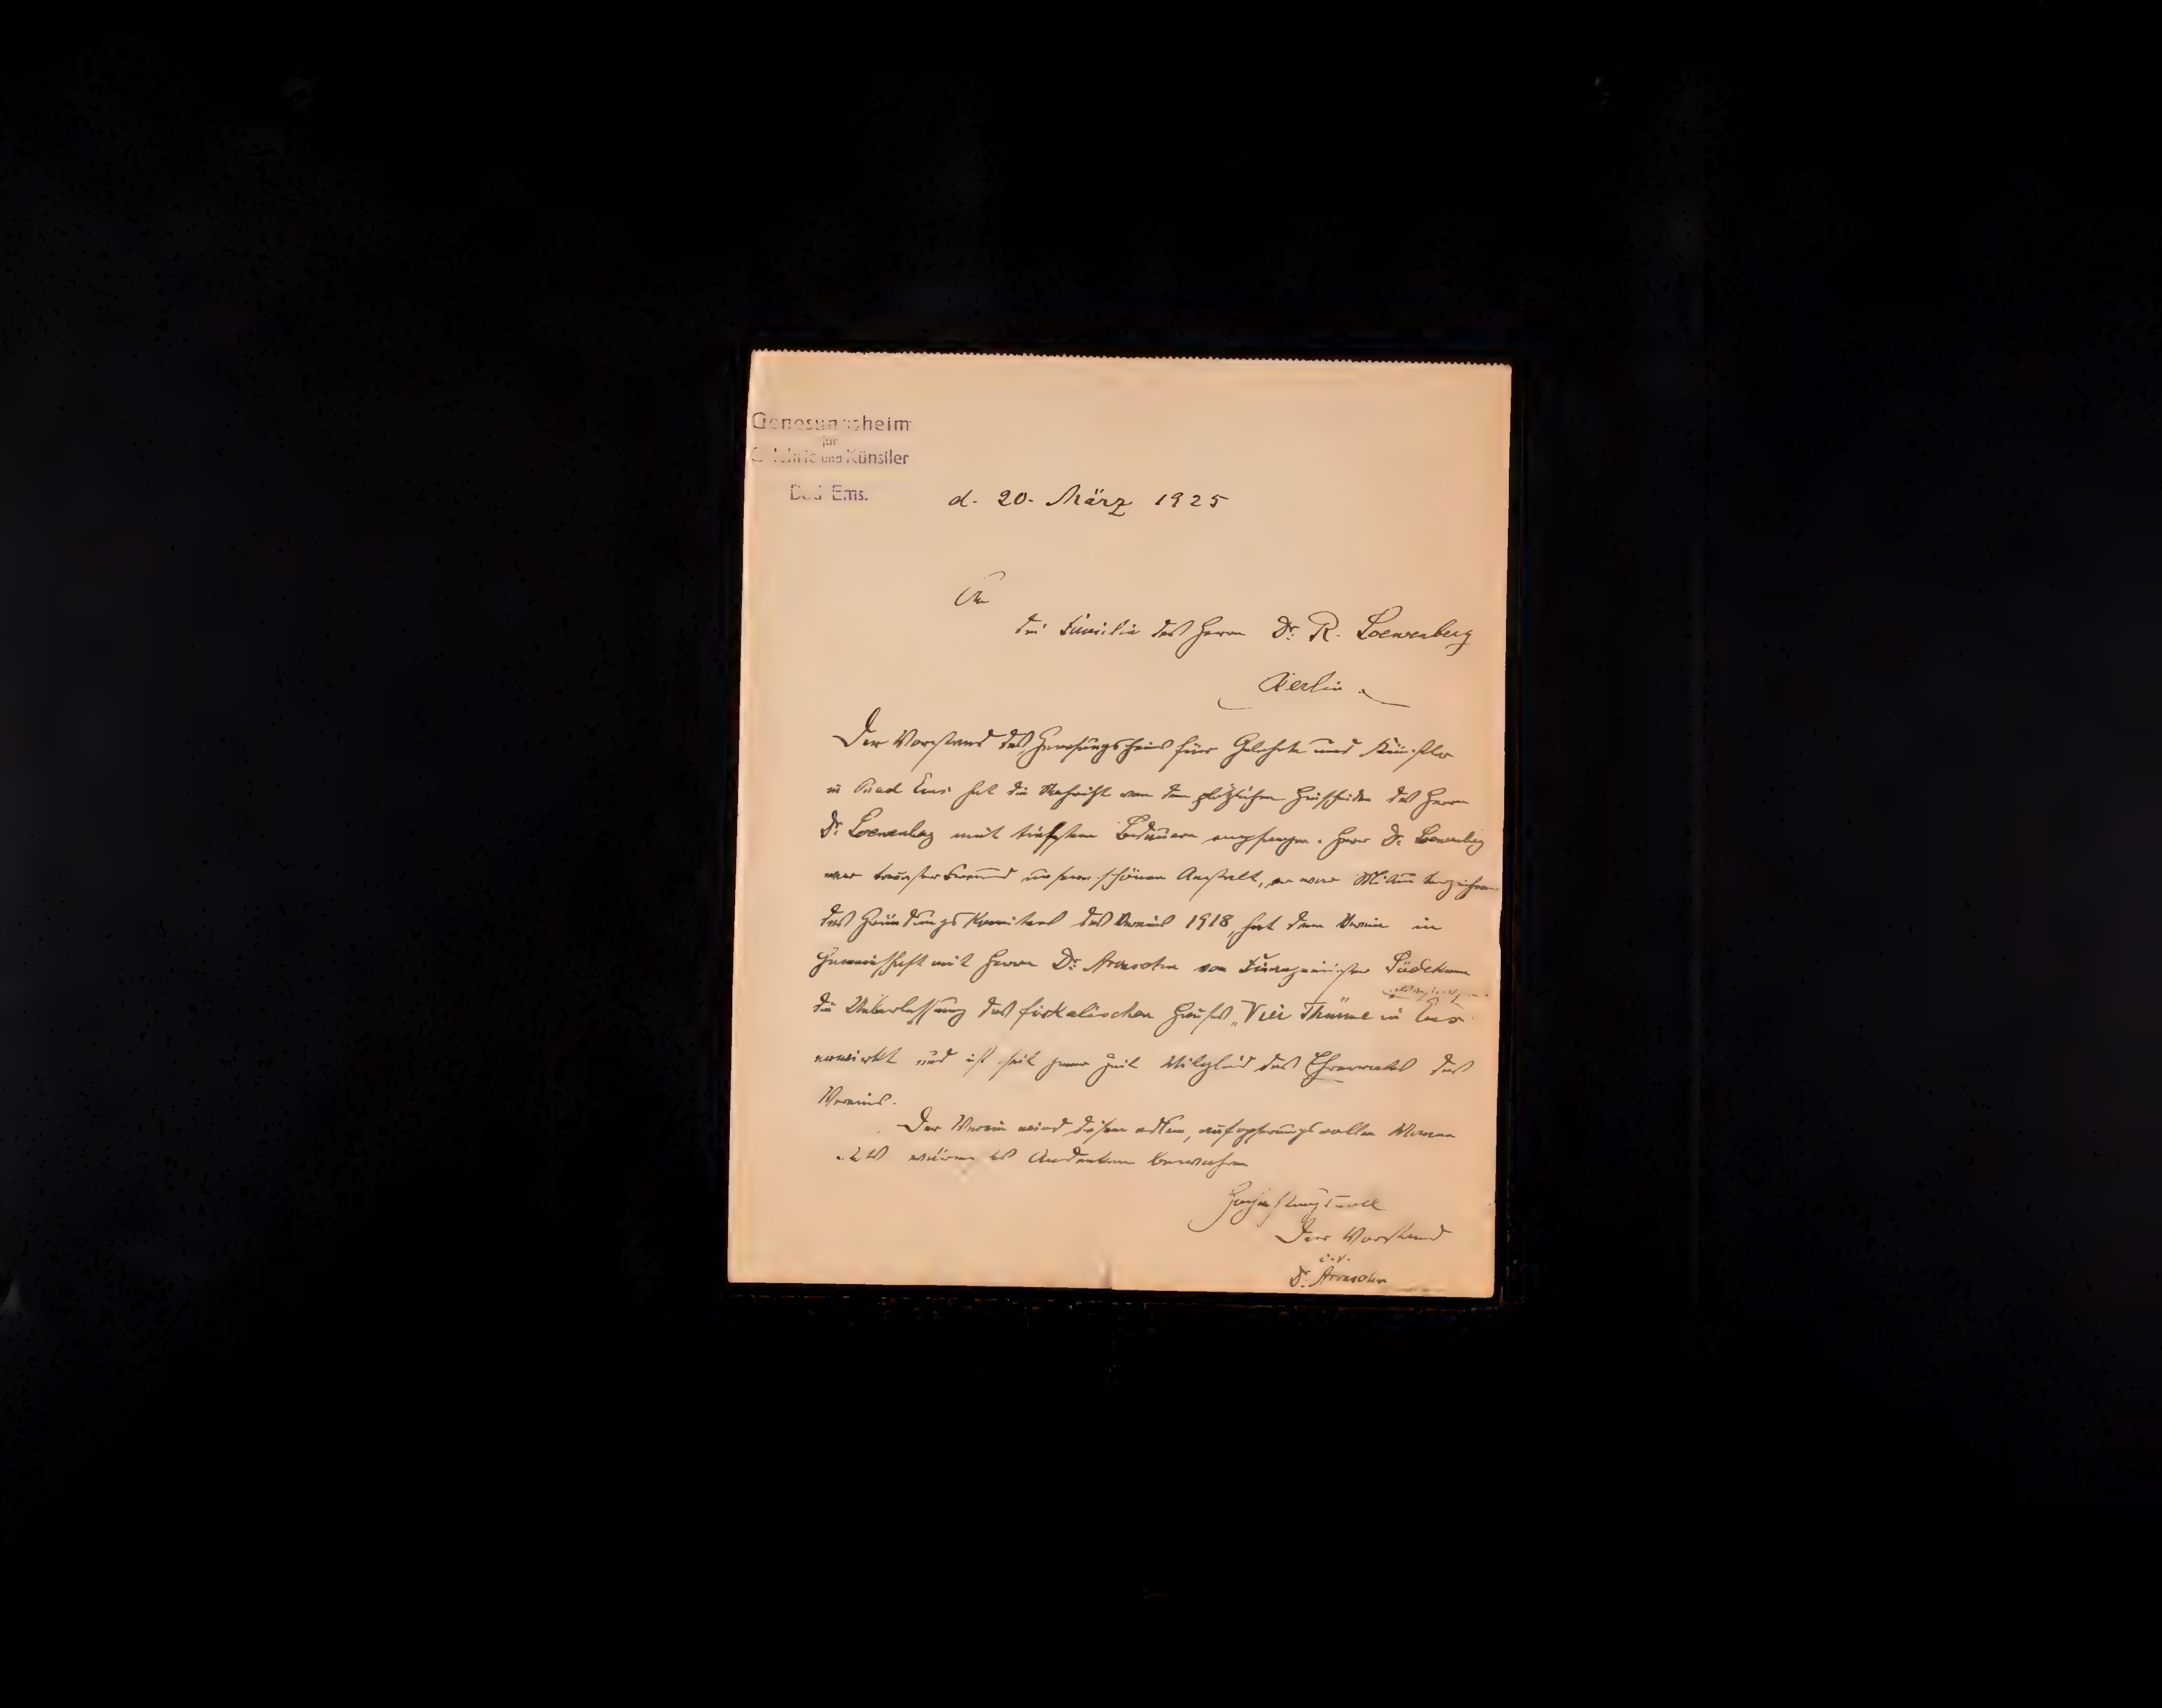 Genesungsheim
für
Gelehrte und Künstler
Bad Ems.
d. 20. März 1925
An
die Familie des Herrn Dr. R. Loewenberg
Berlin.
Der Vorstand des Genesungsheims für Gelehrte und Künstler
in Bad Ems hat die Nachricht von dem plötzlichen Hinscheiden des Herrn
Dr. Loewenberg mit tiefstem Bedauern empfangen. Herr Dr. Loewenberg
war treuester Freund unserer schönen Anstalt, er war Mitunterzeichner
des Gründungskomitees des Vereins 1918, hat dem Verein in
Gemeinschaft mit Herrn Dr. Aronsohn von Finanzminister Südekum
die Ueberlassung des fiskalischen Hauses „Vier Thürme" in Ems
erwirkt und ist seit jener Zeit Mitglied des Ehrenrates des
Vereins.
Der Verein wird diesem edlen, aufopferungsvollen Manne
Andenken bewahren
Hochachtungsvoll
Der Vorstand
i.V.
Dr. Aronsohn